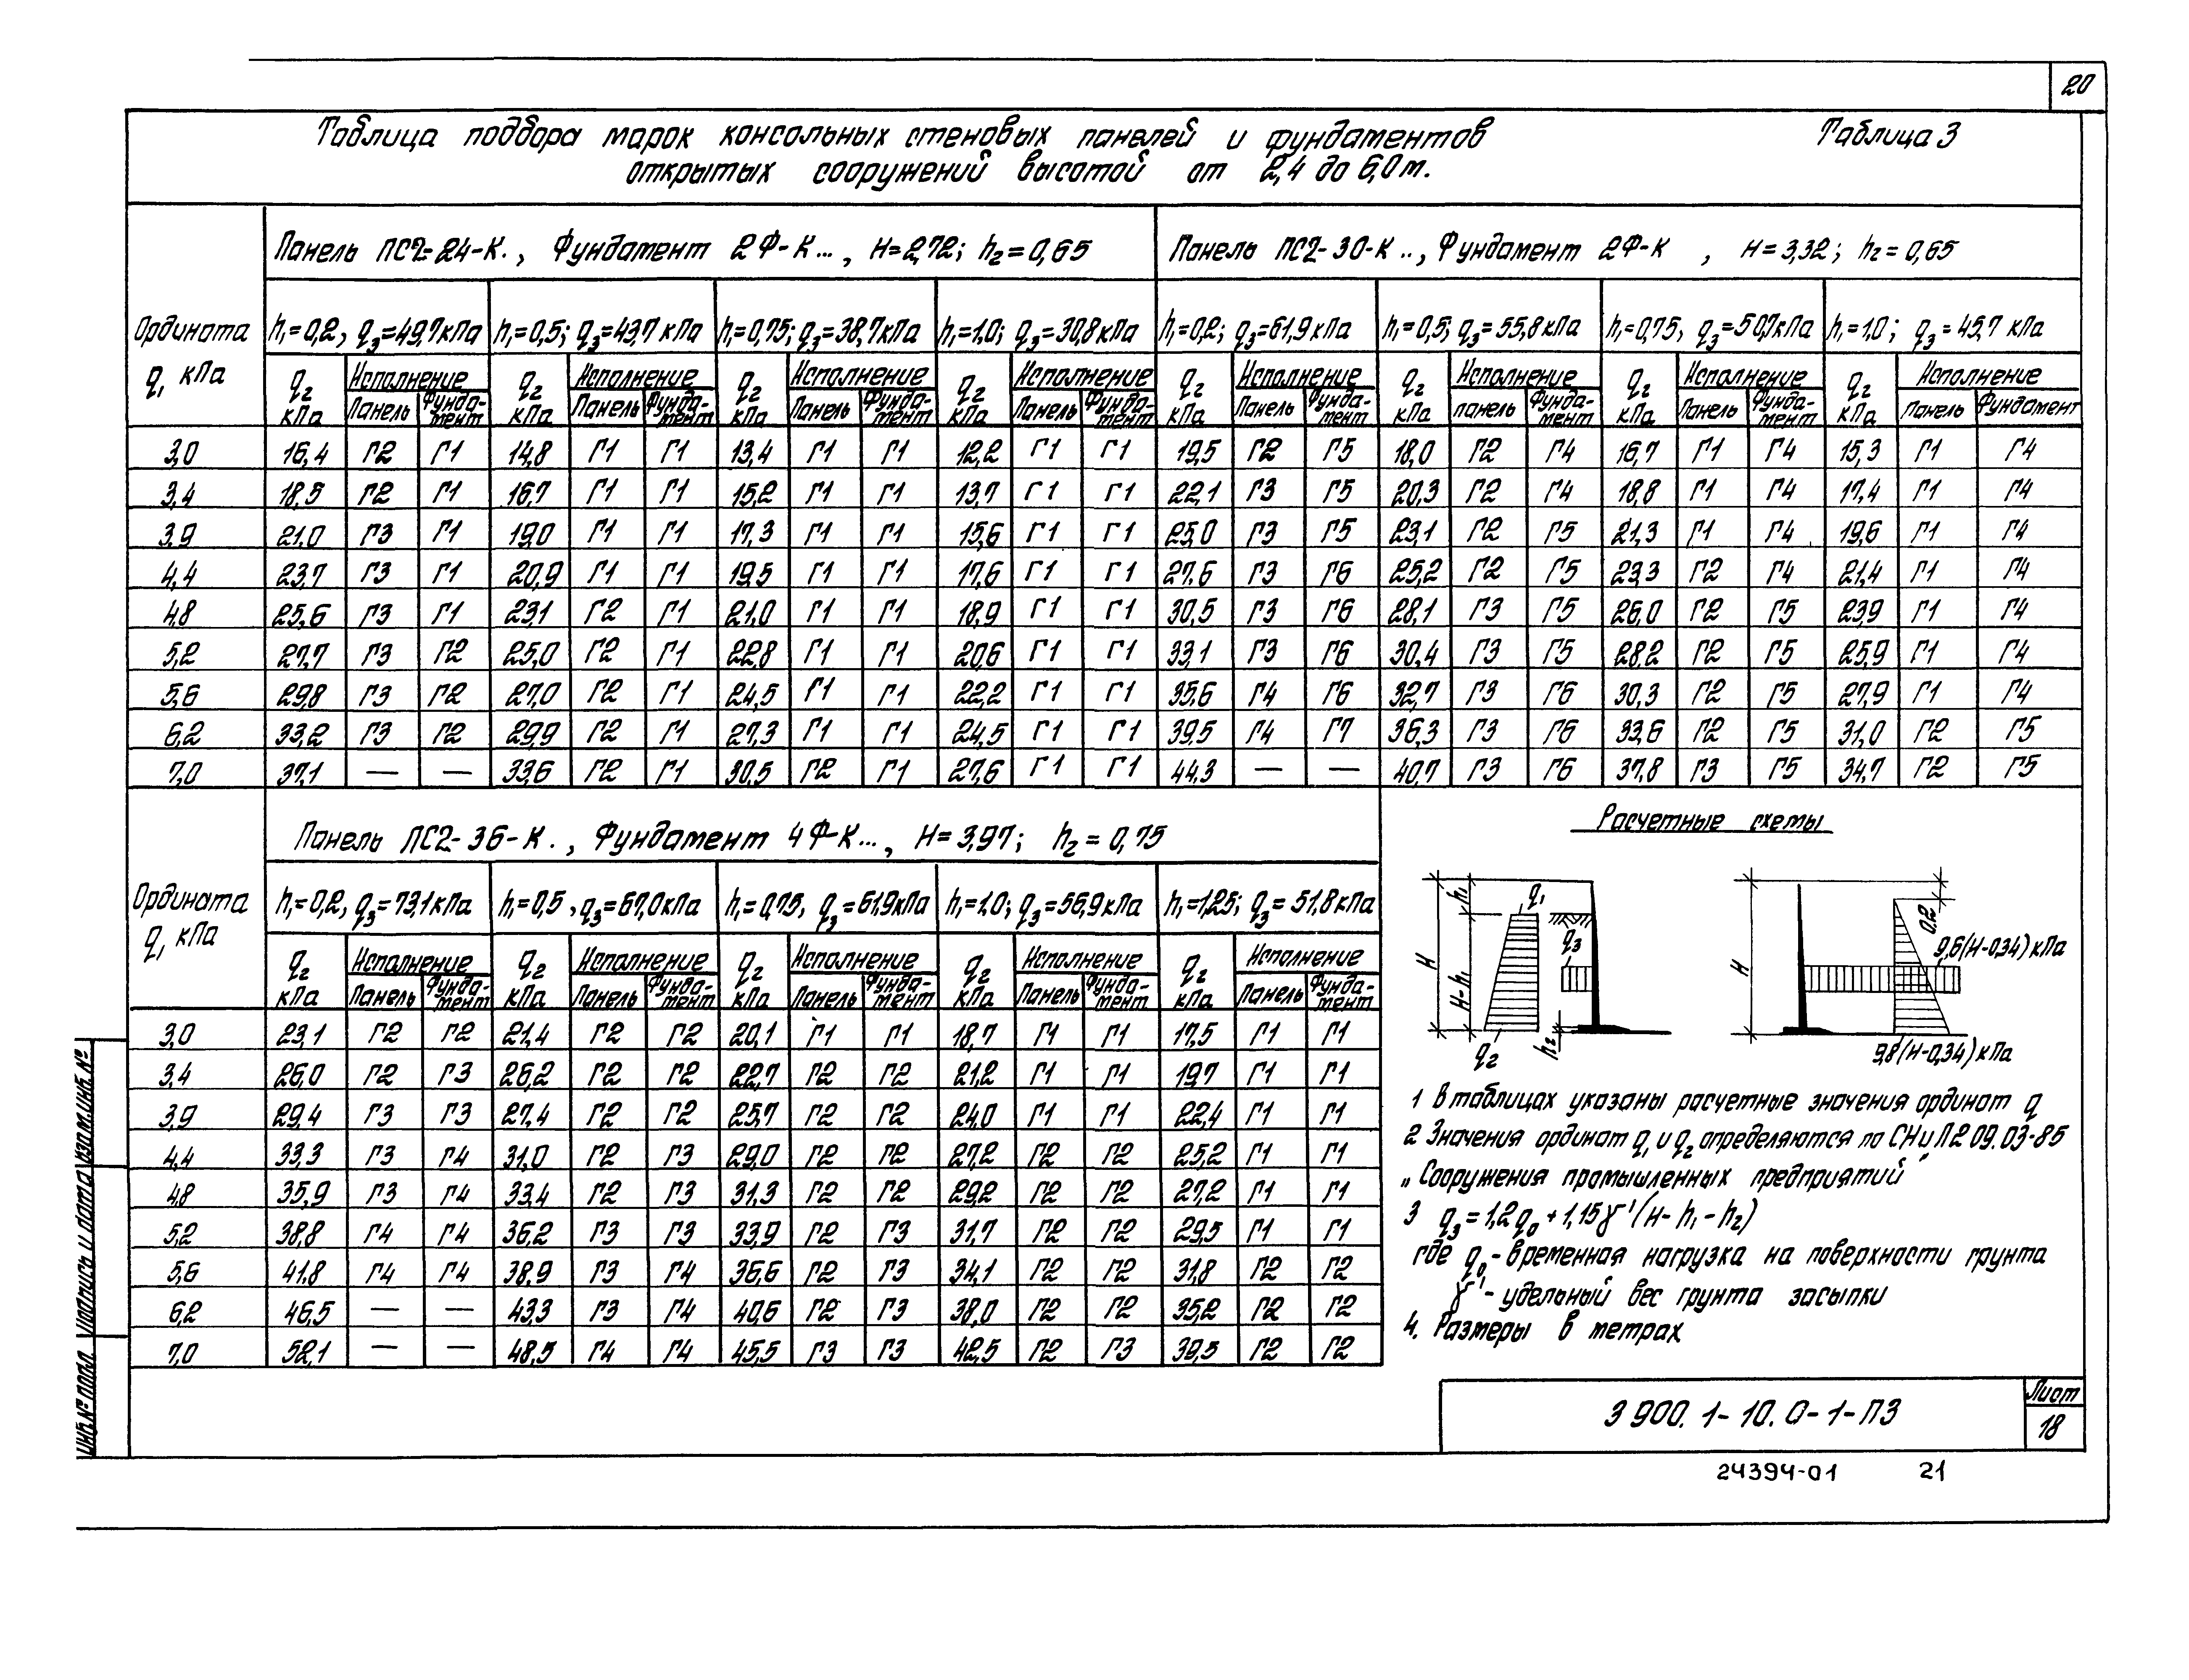 20
Таблица подбора марок консольных стеновых панелей и фундаментов
открытых сооружений высотой от 2,4 до 6,0 м.
Таблица 3
Ордината q₁ кПа
Панель ПС2-24-К., Фундамент 2Ф-К..., H=2,72; h₂=0,65
Панель ПС2-30-К.., Фундамент 2Ф-К , H=3,32; h₂=0,65
h₁=0,2, q₃=49,7кПа h₁=0,5; q₃=43,7 кПа h₁=0,75; q₃=38,7кПа h₁=1,0; q₃=30,8кПа h₁=0,2; q₃=61,9кПа h₁=0,5; q₃=55,8кПа h₁=0,75, q₃=50,7кПа h₁=1,0; q₃=45,7 кПа
q₂ кПа Исполнение Панель Фундамент q₂ кПа Исполнение Панель Фундамент q₂ кПа Исполнение Панель Фундамент q₂ кПа Исполнение Панель Фундамент q₂ кПа Исполнение Панель Фундамент q₂ кПа Исполнение панель Фундамент q₂ кПа Исполнение Панель Фундамент q₂ кПа Исполнение Панель Фундамент
3,0 16,4 Г2 Г1 14,8 Г1 Г1 13,4 Г1 Г1 12,2 Г1 Г1 19,5 Г2 Г5 18,0 Г2 Г4 16,7 Г1 Г4 15,3 Г1 Г4
3,4 18,5 Г2 Г1 16,7 Г1 Г1 15,2 Г1 Г1 13,7 Г1 Г1 22,1 Г3 Г5 20,3 Г2 Г4 18,8 Г1 Г4 17,4 Г1 Г4
3,9 21,0 Г3 Г1 19,0 Г1 Г1 17,3 Г1 Г1 15,6 Г1 Г1 25,0 Г3 Г5 23,1 Г2 Г5 21,3 Г1 Г4 19,6 Г1 Г4
4,4 23,7 Г3 Г1 20,9 Г1 Г1 19,5 Г1 Г1 17,6 Г1 Г1 27,6 Г3 Г6 25,2 Г2 Г5 23,3 Г2 Г4 21,4 Г1 Г4
4,8 25,6 Г3 Г1 23,1 Г2 Г1 21,0 Г1 Г1 18,9 Г1 Г1 30,5 Г3 Г6 28,1 Г3 Г5 26,0 Г2 Г5 23,9 Г1 Г4
5,2 27,7 Г3 Г2 25,0 Г2 Г1 22,8 Г1 Г1 20,6 Г1 Г1 33,1 Г3 Г6 30,4 Г3 Г5 28,2 Г2 Г5 25,9 Г1 Г4
5,6 29,8 Г3 Г2 27,0 Г2 Г1 24,5 Г1 Г1 22,2 Г1 Г1 35,6 Г4 Г6 32,7 Г3 Г6 30,3 Г2 Г5 27,9 Г1 Г4
6,2 33,2 Г3 Г2 29,9 Г2 Г1 27,3 Г1 Г1 24,5 Г1 Г1 39,5 Г4 Г7 36,3 Г3 Г6 33,6 Г2 Г5 31,0 Г2 Г5
7,0 37,1 — — 33,6 Г2 Г1 30,5 Г2 Г1 27,6 Г1 Г1 44,3 — — 40,7 Г3 Г6 37,8 Г3 Г5 34,7 Г2 Г5
Ордината q₁ кПа
Панель ПС2-36-К., Фундамент 4Ф-К..., H=3,97; h₂=0,75
h₁=0,2, q₃=73,1кПа h₁=0,5, q₃=67,0кПа h₁=0,75, q₃=61,9кПа h₁=1,0; q₃=56,9кПа h₁=1,25; q₃=51,8кПа
q₂ кПа Исполнение Панель Фундамент q₂ кПа Исполнение Панель Фундамент q₂ кПа Исполнение Панель Фундамент q₂ кПа Исполнение Панель Фундамент q₂ кПа Исполнение Панель Фундамент
3,0 23,1 Г2 Г2 21,4 Г2 Г2 20,1 Г1 Г1 18,7 Г1 Г1 17,5 Г1 Г1
3,4 26,0 Г2 Г3 26,2 Г2 Г2 22,7 Г2 Г2 21,2 Г1 Г1 19,7 Г1 Г1
3,9 29,4 Г3 Г3 27,4 Г2 Г2 25,7 Г2 Г2 24,0 Г1 Г1 22,4 Г1 Г1
4,4 33,3 Г3 Г4 31,0 Г2 Г3 29,0 Г2 Г2 27,2 Г2 Г2 25,2 Г1 Г1
4,8 35,9 Г3 Г4 33,4 Г2 Г3 31,3 Г2 Г2 29,2 Г2 Г2 27,2 Г1 Г1
5,2 38,8 Г4 Г4 36,2 Г3 Г3 33,9 Г2 Г3 31,7 Г2 Г2 29,5 Г1 Г1
5,6 41,8 Г4 Г4 38,9 Г3 Г4 36,6 Г2 Г3 34,1 Г2 Г2 31,8 Г2 Г2
6,2 46,5 — — 43,3 Г3 Г4 40,6 Г2 Г3 38,0 Г2 Г2 35,2 Г2 Г2
7,0 52,1 — — 48,5 Г4 Г4 45,5 Г3 Г3 42,5 Г2 Г3 39,5 Г2 Г2
Расчетные схемы
H h₁ H-h₁ q₁ q₃ q₂ h₂
H 0,2 9,6(H-0,34) кПа
9,8(H-0,34) кПа
1 В таблицах указаны расчетные значения ординат q
2 Значения ординат q₁ и q₂ определяются по СНиП 2 09.03-85
„Сооружения промышленных предприятий"
3 q₃=1,2q₀+1,15γ'(H-h₁-h₂)
где q₀- временная нагрузка на поверхности грунта
γ'- удельный вес грунта засыпки
4. Размеры в метрах
Инв.№ подл. Подпись и дата Взам.инв.№
3 900. 1-10. 0-1-ПЗ
Лист
18
24394-01 21